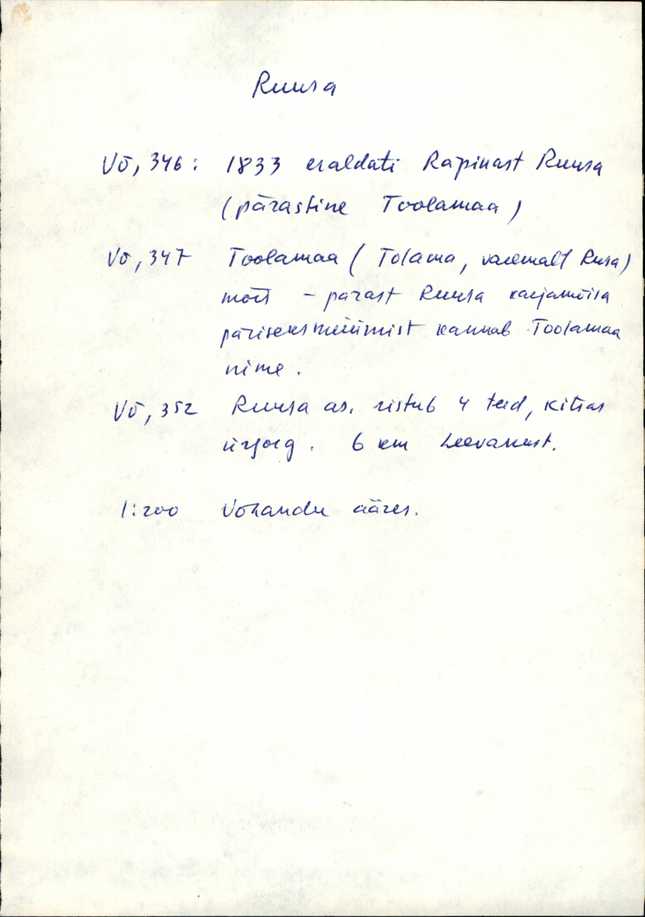 Ruusa
Võ, 346: 1833 eraldati Räpinast Ruusa
(pärastine Toolamaa)
Võ, 347 Toolamaa (Tolama, varemalt Rusa)
mõis - pärast Ruusa karjamõisa
päriseksmüümist kannab Toolamaa
nime.
Võ, 352 Ruusa as. ristub 4 teed, kitsas
ürgorg. 6 km Leevakust.
1:200 Võhandu ääres.